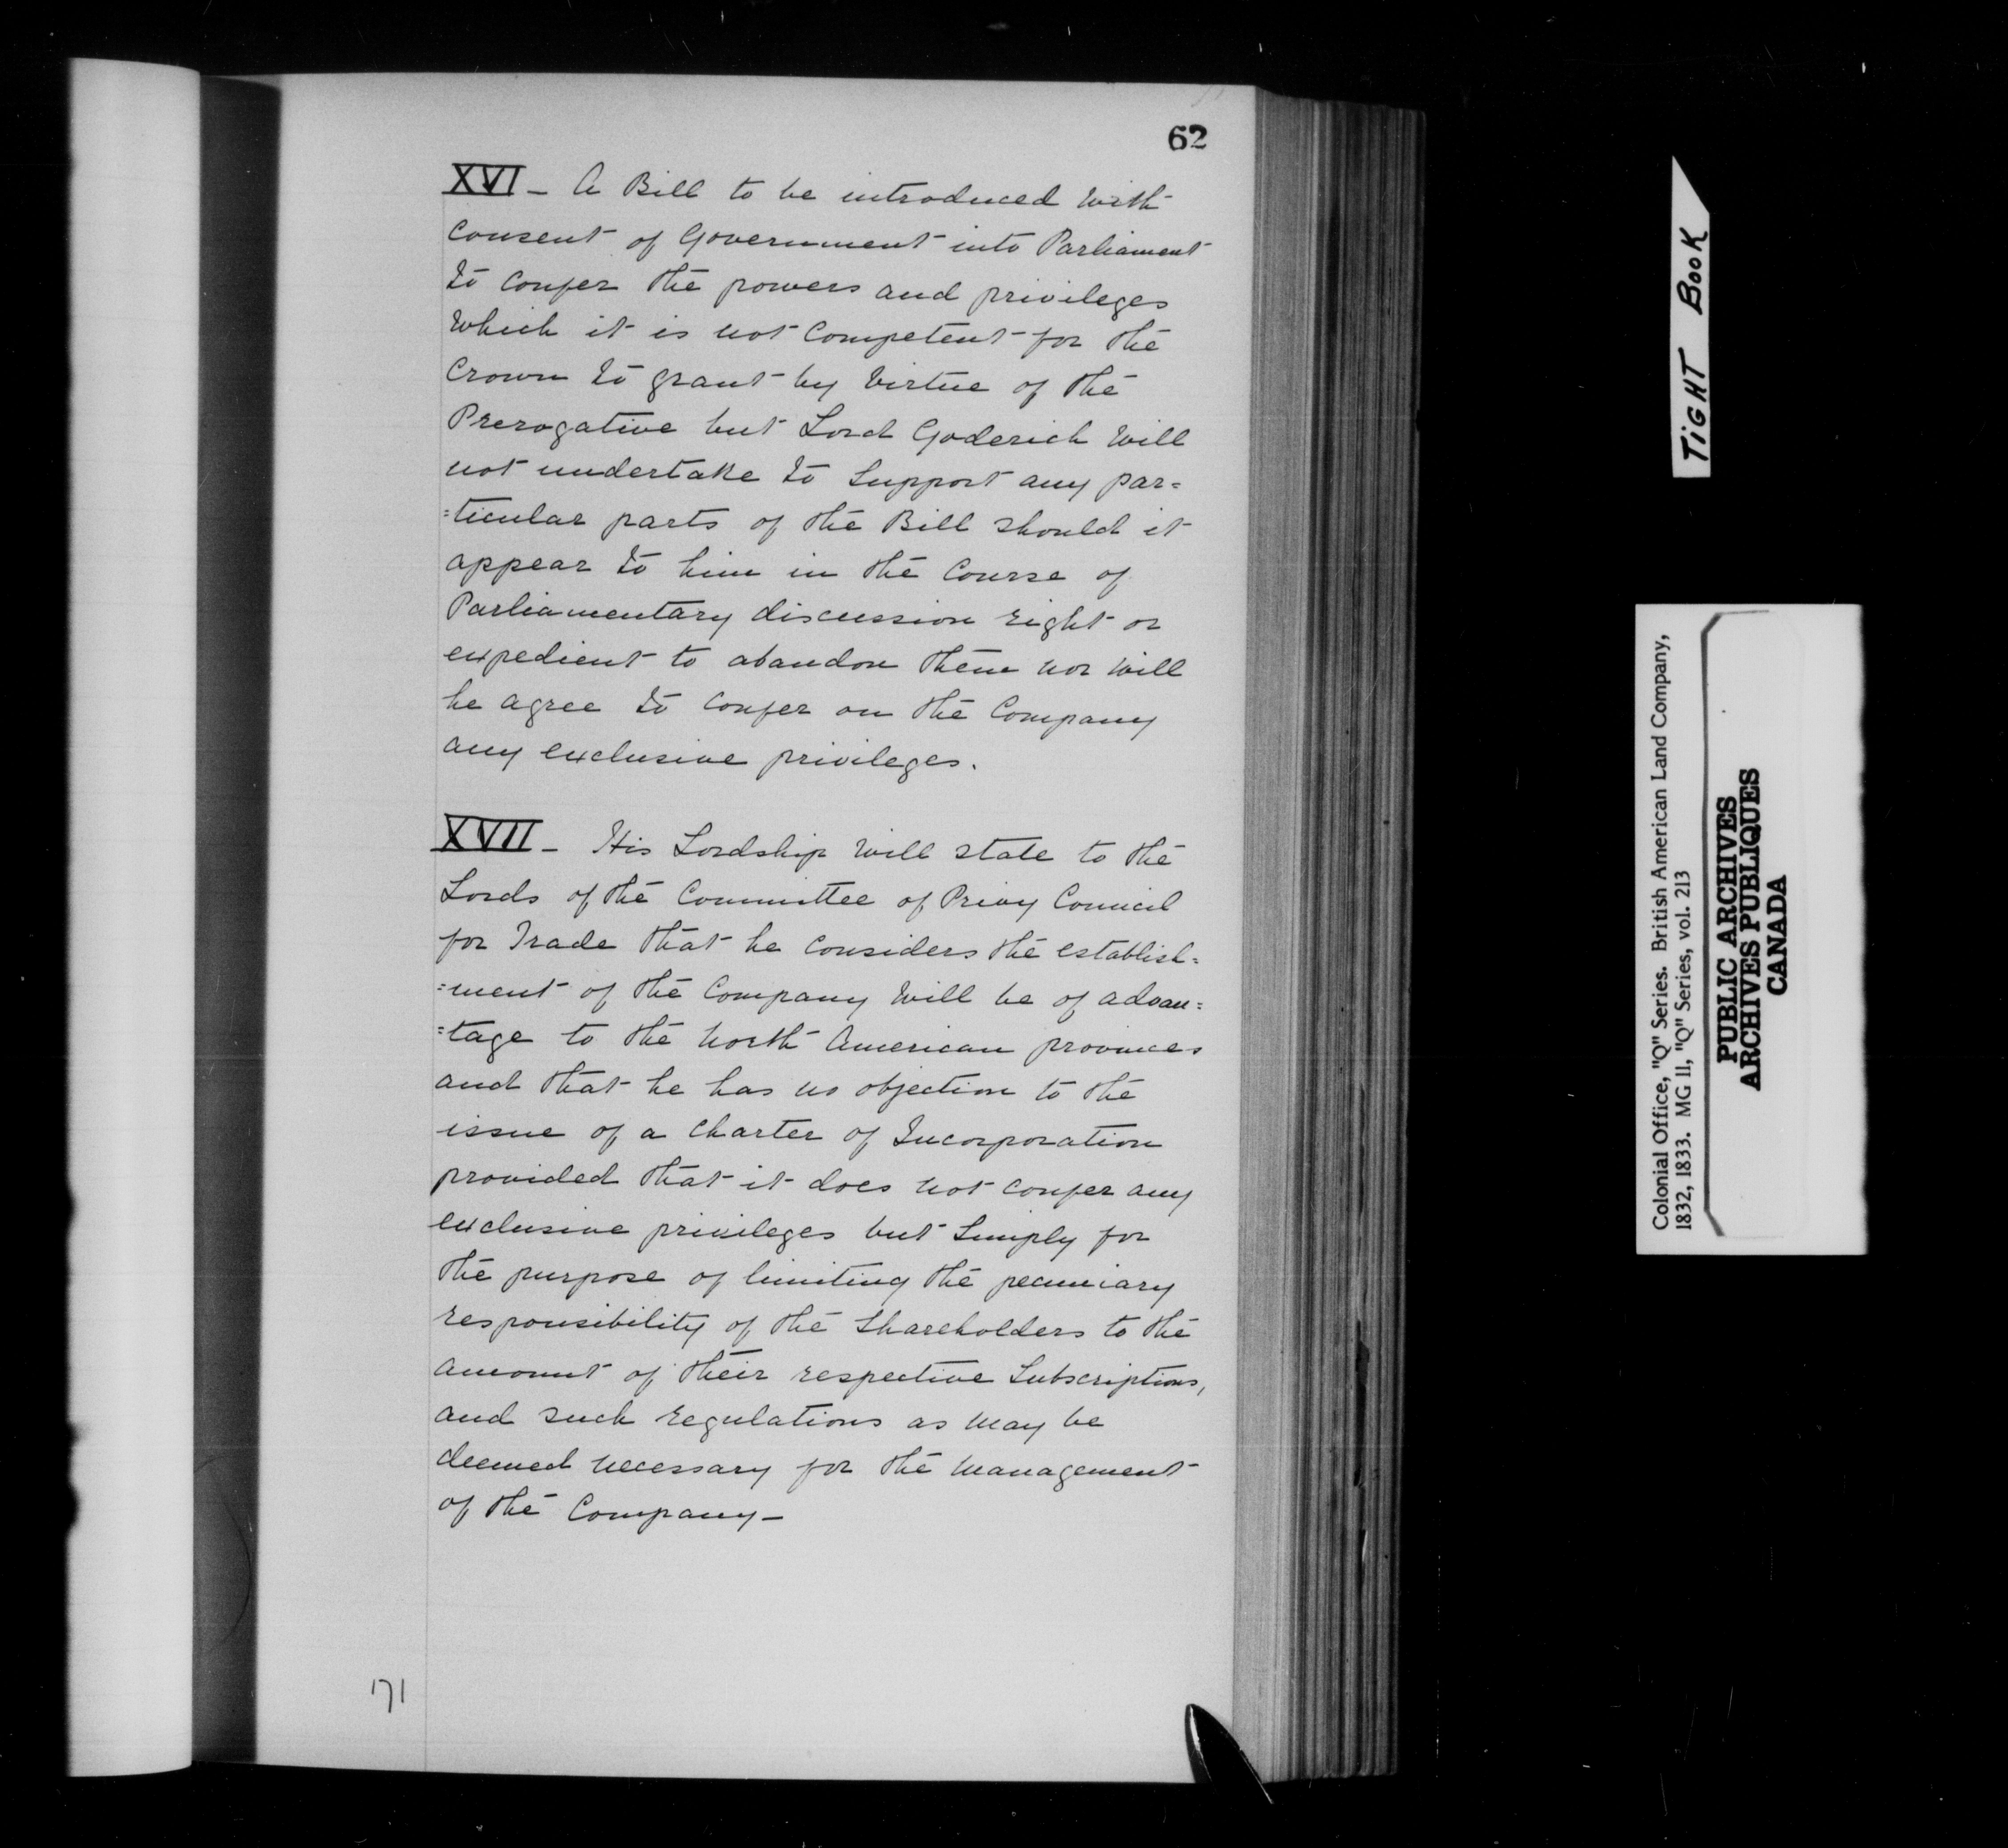 62
XVI - A Bill to be introduced with
Consent of Government into Parliament
to confer the powers and privileges
which it is not competent for the
Crown to grant by virtue of the
Prerogative but Lord Goderich will
not undertake to support any par=
=ticular parts of the Bill should it
appear to him in the course of
Parliamentary discussion right or
expedient to abandon them nor will
he agree to confer on the Company
any exclusive privileges.
XVII - His Lordship will state to the
Lords of the Committee of Privy Council
for Trade that he considers the establish=
=ment of the Company will be of advan=
=tage to the North American provinces
and that he has no objection to the
issue of a Charter of Incorporation
provided that it does not confer any
exclusive privileges but simply for
the purpose of limiting the pecuniary
responsibility of the Shareholders to the
amount of their respective Subscriptions,
and such regulations as may be
deemed necessary for the management
of the Company -
171
TIGHT BOOK
Colonial Office, "Q" Series. British American Land Company,
1832, 1833. MG 11, "Q" Series, vol. 213
PUBLIC ARCHIVES
ARCHIVES PUBLIQUES
CANADA